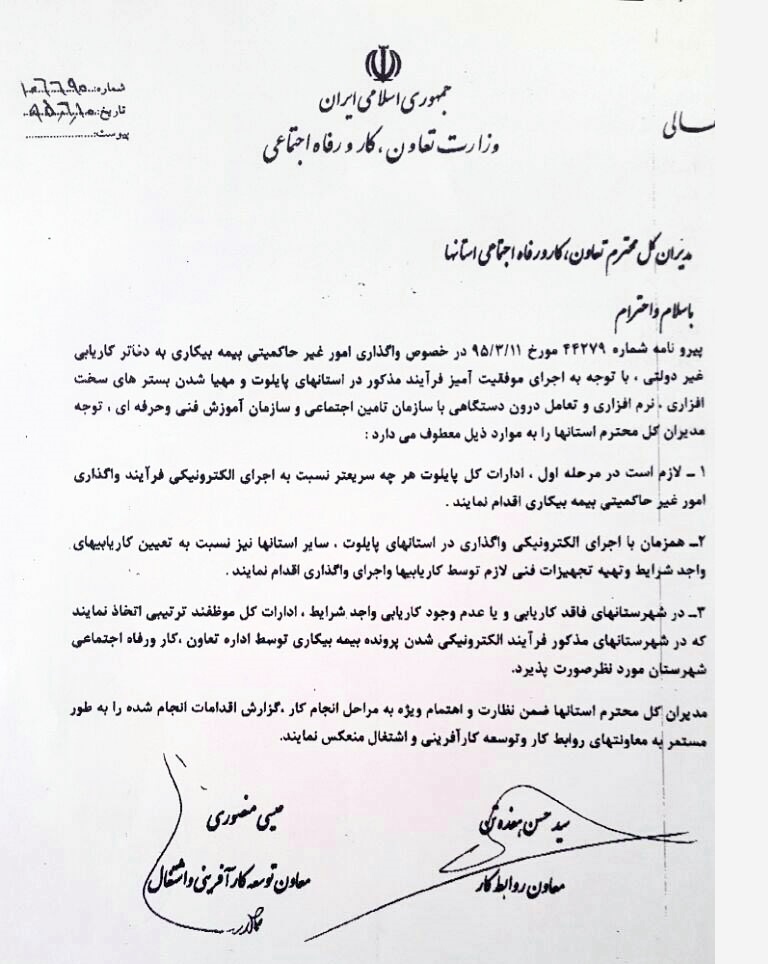 جمهوری اسلامی ایران
وزارت تعاون، کار و رفاه اجتماعی
شماره: ۱۰۶۶۹۵
تاریخ: ۹۵،۶،۱۰
پیوست:
مدیران کل محترم تعاون، کار و رفاه اجتماعی استانها
باسلام و احترام
پیرو نامه شماره ۴۴۲۷۹ مورخ ۹۵/۳/۱۱ در خصوص واگذاری امور غیر حاکمیتی بیمه بیکاری به دفاتر کاریابی
غیر دولتی ، با توجه به اجرای موفقیت آمیز فرآیند مذکور در استانهای پایلوت و مهیا شدن بستر های سخت
افزاری ، نرم افزاری و تعامل درون دستگاهی با سازمان تامین اجتماعی و سازمان آموزش فنی وحرفه ای ، توجه
مدیران کل محترم استانها را به موارد ذیل معطوف می دارد :
۱ ـ لازم است در مرحله اول ، ادارات کل پایلوت هر چه سریعتر نسبت به اجرای الکترونیکی فرآیند واگذاری
امور غیر حاکمیتی بیمه بیکاری اقدام نمایند .
۲ـ همزمان با اجرای الکترونیکی واگذاری در استانهای پایلوت ، سایر استانها نیز نسبت به تعیین کاریابیهای
واجد شرایط وتهیه تجهیزات فنی لازم توسط کاریابیها واجرای واگذاری اقدام نمایند .
۳ـ در شهرستانهای فاقد کاریابی و یا عدم وجود کاریابی واجد شرایط ، ادارات کل موظفند ترتیبی اتخاذ نمایند
که در شهرستانهای مذکور فرآیند الکترونیکی شدن پرونده بیمه بیکاری توسط اداره تعاون ،کار ورفاه اجتماعی
شهرستان مورد نظرصورت پذیرد.
مدیران کل محترم استانها ضمن نظارت و اهتمام ویژه به مراحل انجام کار ،گزارش اقدامات انجام شده را به طور
مستمر به معاونتهای روابط کار وتوسعه کارآفرینی و اشتغال منعکس نمایند.
سید حسن هفده تن
معاون روابط کار
عیسی منصوری
معاون توسعه کارآفرینی و اشتغال